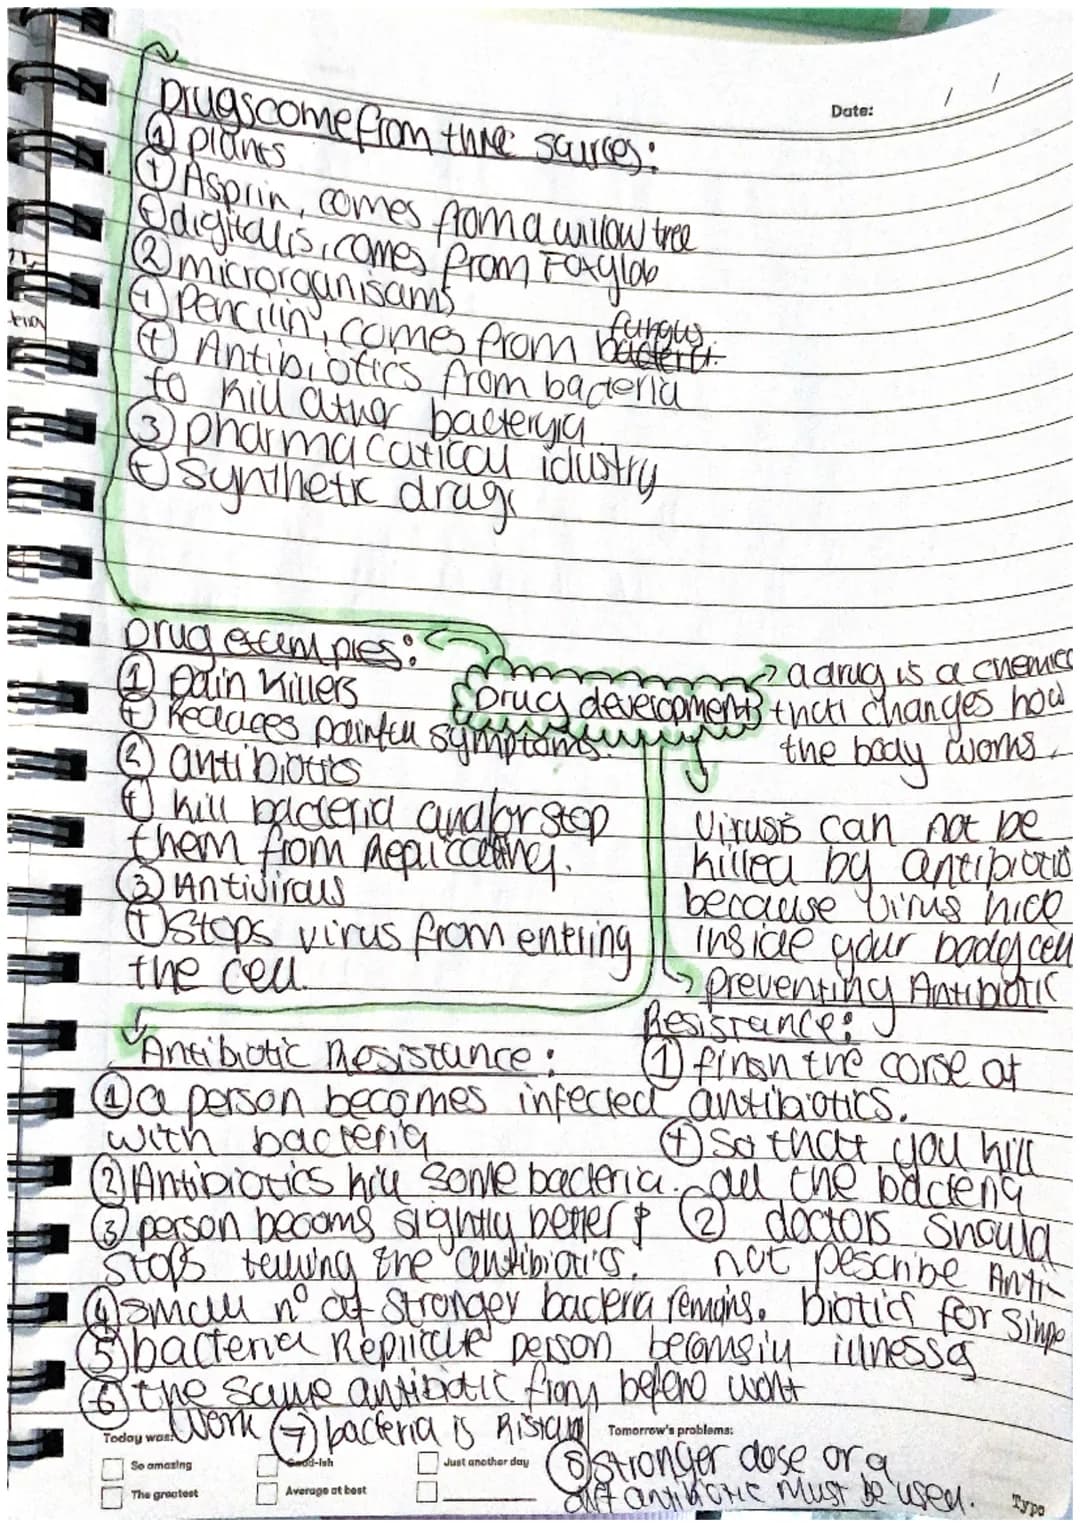 Date: / /
Drugs come from three sources:
① plants
⊕ Asprin, comes from a willow tree
⊕ digitalis, comes from Foxglob
② micrорganisams
⊕ Pencilin, comes from fungus
⊕ Antibiotics from bacteria
to kill other bacterya
③ pharmacatical idustry
⊕ synthetic drugs
Drug examples:
① Pain killers
⊕ Reduces painful symptoms.
② antibiotics
⊕ kill bacteria and/or stop
them from Replicating.
③ Antivirus
⊕ Stops virus from entring
the cell.
Drug development
a drug is a chemica
that changes how
the body works.
Viruses can not be
killed by antibiotics
because virus hide
inside your body cell
preventing Antibiotic
Resistance:
① finsh the corse of
antibiotics.
⊕ so that you kill
all the bacteria
② doctors should
not pescribe Anti
biotics for simpe
Antibiotic Resistance:
① a person becomes infected
with bacteria
② Antibiotics kill some bacteria.
③ person becoms slightly better &
stops taking the antibiotics.
④ small nº of stronger bacteria remains.
⑤ bacteria Replicate person becomsiu illnessg
⑥ the same antibiotic from before wont
work ⑦ bacteria is Ristant
⑧ stronger dose or a
diff antibiotic must be used.
Today was:
So amazing
Good-ish
Just another day
The greatest
Average at best
Tomorrow's problems:
Typo